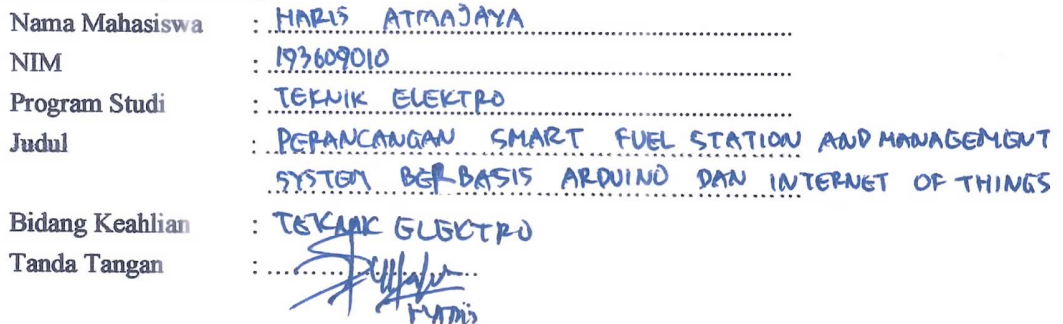 Nama Mahasiswa : HARIS ATMAJAYA
NIM : 193609010
Program Studi : TEKNIK ELEKTRO
Judul : PERANCANGAN SMART FUEL STATION AND MANAGEMENT
SYSTEM BERBASIS ARDUINO DAN INTERNET OF THINGS
Bidang Keahlian : TEKNIK ELEKTRO
Tanda Tangan :